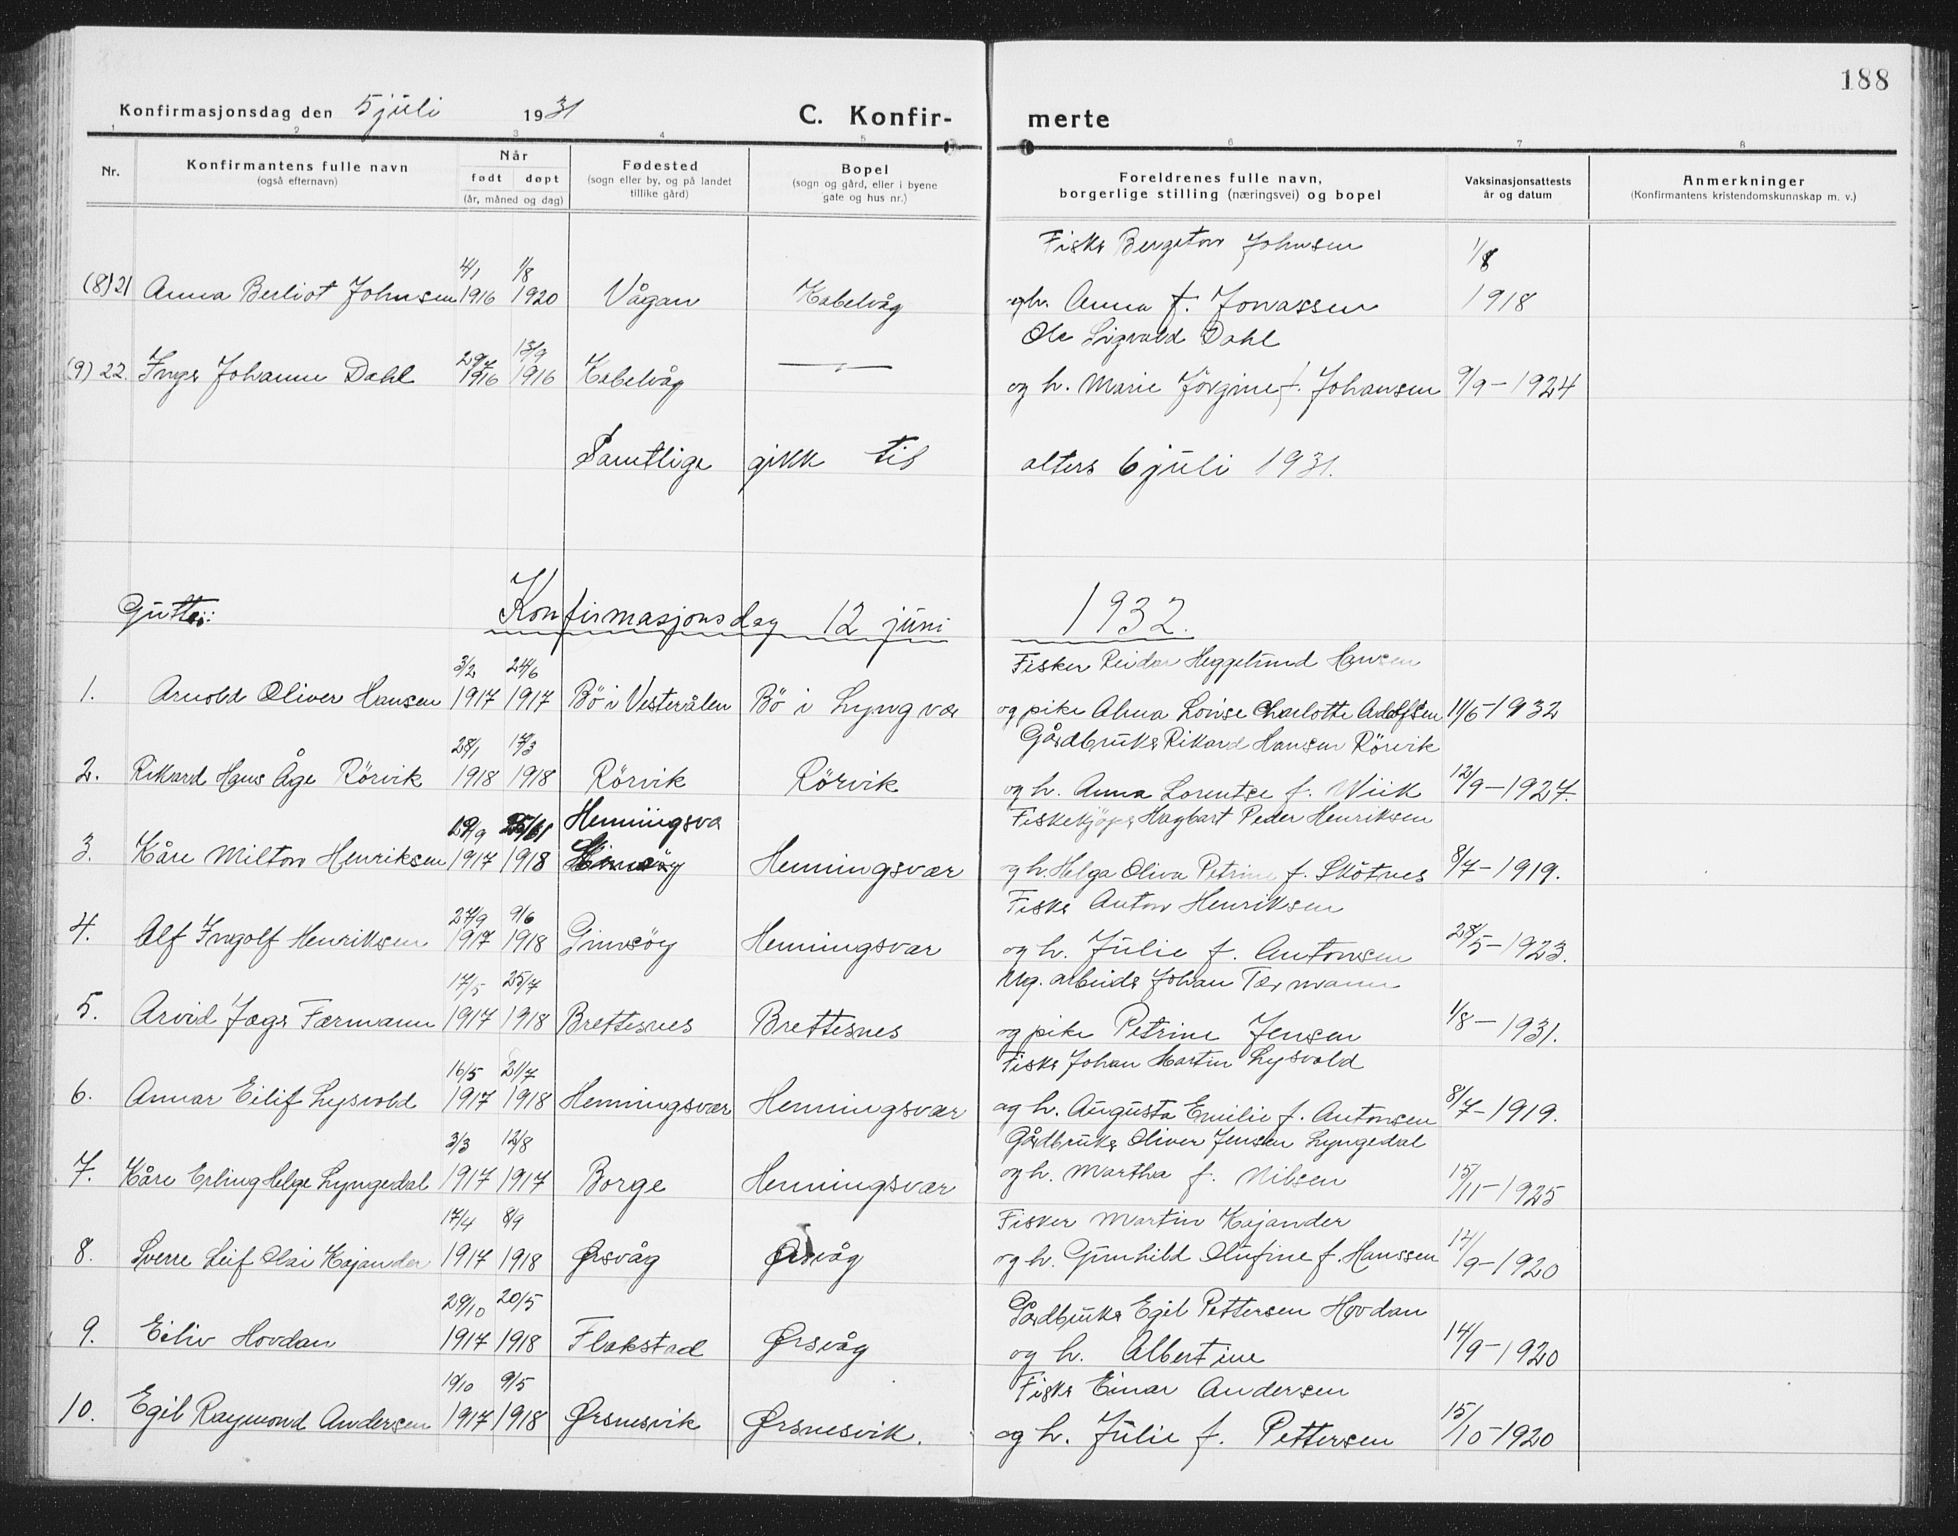 188
Konfirmasjonsdag den 5 juli 1931 C. Konfir- merte
1 2 3 4 5 6 7 8
Nr. Konfirmantens fulle navn (også efternavn) Når født døpt (år, måned og dag) Fødested (sogn eller by, og på landet tillike gård) Bopel (sogn og gård, eller i byene gate og hus nr.) Foreldrenes fulle navn, borgerlige stilling (næringsvei) og bopel Vaksinasjonsattests år og datum Anmerkninger (Konfirmantens kristendomskunnskap m. v.)
4/1 1/8 Fisker Bergeton Johnsen 1/8
(8) 21 Anna Berliot Johnsen 1916 1920 Vågan Kabelvåg og h. Anna f. Jonassen 1918
29/7 13/9 Ole Sigvald Dahl
(9) 22. Inger Johanne Dahl 1916 1916 Kabelvåg — " — og h. Marie Jörgine f. Johansen 9/9 - 1924
Samtlige gikk til alters 6 juli 1931.
Gutter: Konfirmasjonsdag 12 juni 1932.
3/2 24/6 Fisker Reidar Heggelund Hansen
1. Arnold Oliver Hansen 1917 1917 Bö i Vesterålen Bö i Lyngvær og pike Alma Lovise Charlotte Adolfsen 11/6-1932
28/1 17/3 Gårdbruker Rikard Hansen Rörvik
2. Rikard Hans Åge Rörvik 1918 1918 Rörvik Rörvik og h. Anna Lorentse f. Wiik 12/9-1927.
29/9 Henningsva Fiskekjöper Hagbart Peder Henriksen
3. Kåre Milton Henriksen 1917 1918 Henningsvær og h. Helga Oliva Petrine f. Skötnes 8/7-1919.
27/9 9/6 Fisker Anton Henriksen
4. Alf Ingolf Henriksen 1917 1918 Gimsöy Henningsvær og h. Julie f. Antonsen 28/5-1923.
17/5 25/7 Ug. arbeider Johan Færmann
5. Arvid Jæger Færmann 1917 1918 Brettesnes Brettesnes og pike Petrine Jensen 1/8 - 1931.
16/5 21/7 Fisker Johan Martin Lysvold
6. Annar Eilif Lysvold 1917 1918 Henningsvær Henningsvær og h. Augusta Emilie f. Antonsen 8/7-1919.
3/3 12/8 Gårdbruker Oliver Jensen Lyngedal
7. Kåre Erling Helge Lyngedal 1917 1917 Borge Henningsvær og h. Martha f. Nilsen 15/11-1925
17/4 8/9 Fisker Martin Kajander
8. Sverre Leif Olai Kajander 1917 1918 Ørsvåg Ørsvåg og h. Gunhild Olufine f. Hanssen 14/9-1920
29/10 20/5 Gårdbruker Egil Pettersen Hovdan
9. Eiliv Hovdan 1917 1918 Flakstad Ørsvåg og h. Albertine 14/9-1920
19/10 9/5 Fisker Einar Andersen
10. Egil Raymond Andersen 1917 1918 Ørsnesvik Ørsnesvik. og h. Julie f. Pettersen 15/10-1920